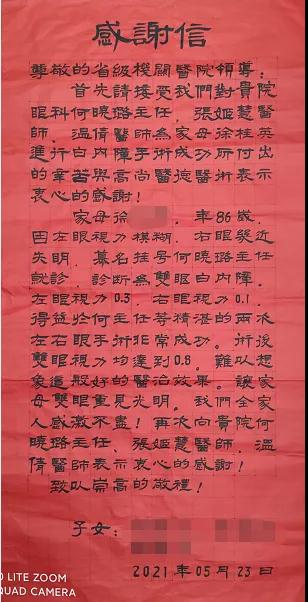 感謝信
尊敬的省級機關醫院領導：
首先請接受我們對貴院
眼科何曉璐主任，張姬慧醫
師，溫倩醫師為家母徐桂英
進行白内障手術成功所付出
的辛苦與高尚醫德醫術表示
衷心的感謝！
家母徐，年86歲，
因左眼視力模糊，右眼幾近
失明，慕名挂号何曉璐主任
就診，診斷為雙眼白内障。
左眼視力0.3，右眼視力0.1，
得益於何主任等精湛的兩次
左右眼手術非常成功。術後
雙眼視力均達到0.8，難以想
象這般好的醫治效果。讓家
母雙眼重見光明。我們全家
人感激不盡！再次向貴院何
曉璐主任、張姬慧醫師、溫
倩醫師表示衷心的感謝！
致以崇高的敬禮！
子女：
2021年05月23日
LITE ZOOM
QUAD CAMERA